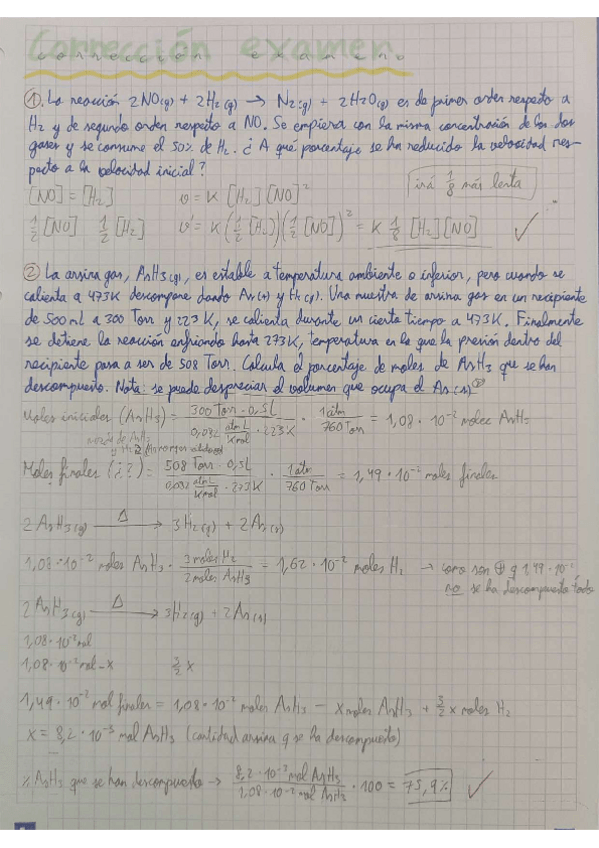 Corrección examen.
① La reacción 2NO(g) + 2H₂(g) → N₂(g) + 2H₂O(g) es de primer orden respecto a
H₂ y de segundo orden respecto a NO. Se empieza con la misma concentración de los dos
gases y se consume el 50% de H₂. ¿A qué porcentaje se ha reducido la velocidad res-
pecto a la velocidad inicial?
[NO] = [H₂] v = K [H₂][NO]² irá 1/8 más lenta
1/2 [NO] 1/2 [H₂] v' = K (1/2 [H₂])(1/2 [NO])² = K 1/8 [H₂][NO] ✓
② La arsina gas, AsH₃(g), es estable a temperatura ambiente o inferior, pero cuando se
calienta a 473K descompone dando As(s) y H₂(g). Una muestra de arsina gas en un recipiente
de 500 mL a 300 Torr y 223K, se calienta durante un cierto tiempo a 473K. Finalmente
se detiene la reacción enfriando hasta 273K, temperatura en la que la presión dentro del
recipiente pasa a ser de 508 Torr. Calcula el porcentaje de moles de AsH₃ que se han
descompuesto. Nota: se puede despreciar el volumen que ocupa el As(s)
Moles iniciales (AsH₃) = 300 Torr · 0,5L / 0,082 atm L/K mol · 223K · 1 atm / 760 Torr = 1,08 · 10⁻² moles AsH₃
mezcla de AsH₃
y H₂
Moles finales (¿?) = 508 Torr · 0,5L / 0,082 atm L/K mol · 273K · 1 atm / 760 Torr = 1,49 · 10⁻² moles finales
2 AsH₃(g) —Δ→ 3H₂(g) + 2As(s)
1,08 · 10⁻² moles AsH₃ · 3 moles H₂ / 2 moles AsH₃ = 1,62 · 10⁻² moles H₂ → como son ⊕ q 1,49 · 10⁻²
no se ha descompuesto todo
2 AsH₃(g) —Δ→ 3H₂(g) + 2As(s)
1,08 · 10⁻² mol
1,08 · 10⁻² mol - x 3/2 x
1,49 · 10⁻² mol finales = 1,08 · 10⁻² moles AsH₃ - x moles AsH₃ + 3/2 x moles H₂
x = 8,2 · 10⁻³ mol AsH₃ (cantidad arsina q se ha descompuesto)
% AsH₃ que se han descompuesto → 8,2 · 10⁻³ mol AsH₃ / 1,08 · 10⁻² mol AsH₃ · 100 = 75,9% ✓